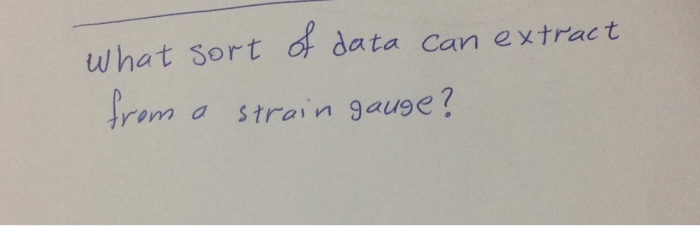 What sort of data can extract
from a strain gauge?